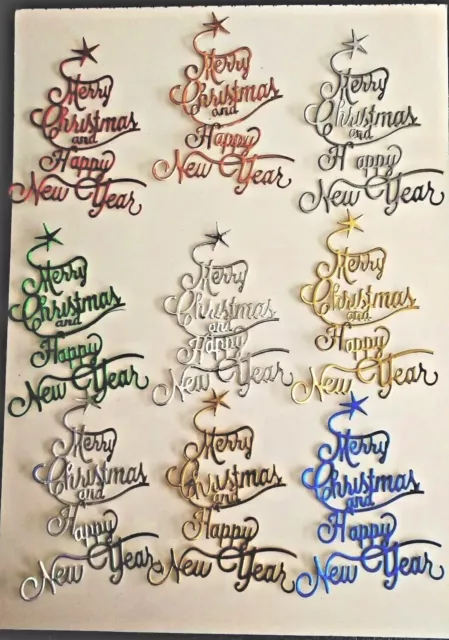 Merry
Christmas
and
Happy
New Year
Merry
Christmas
and
Happy
New Year
Merry
Christmas
and
Happy
New Year
Merry
Christmas
and
Happy
New Year
Merry
Christmas
and
Happy
New Year
Merry
Christmas
and
Happy
New Year
Merry
Christmas
and
Happy
New Year
Merry
Christmas
and
Happy
New Year
Merry
Christmas
and
Happy
New Year